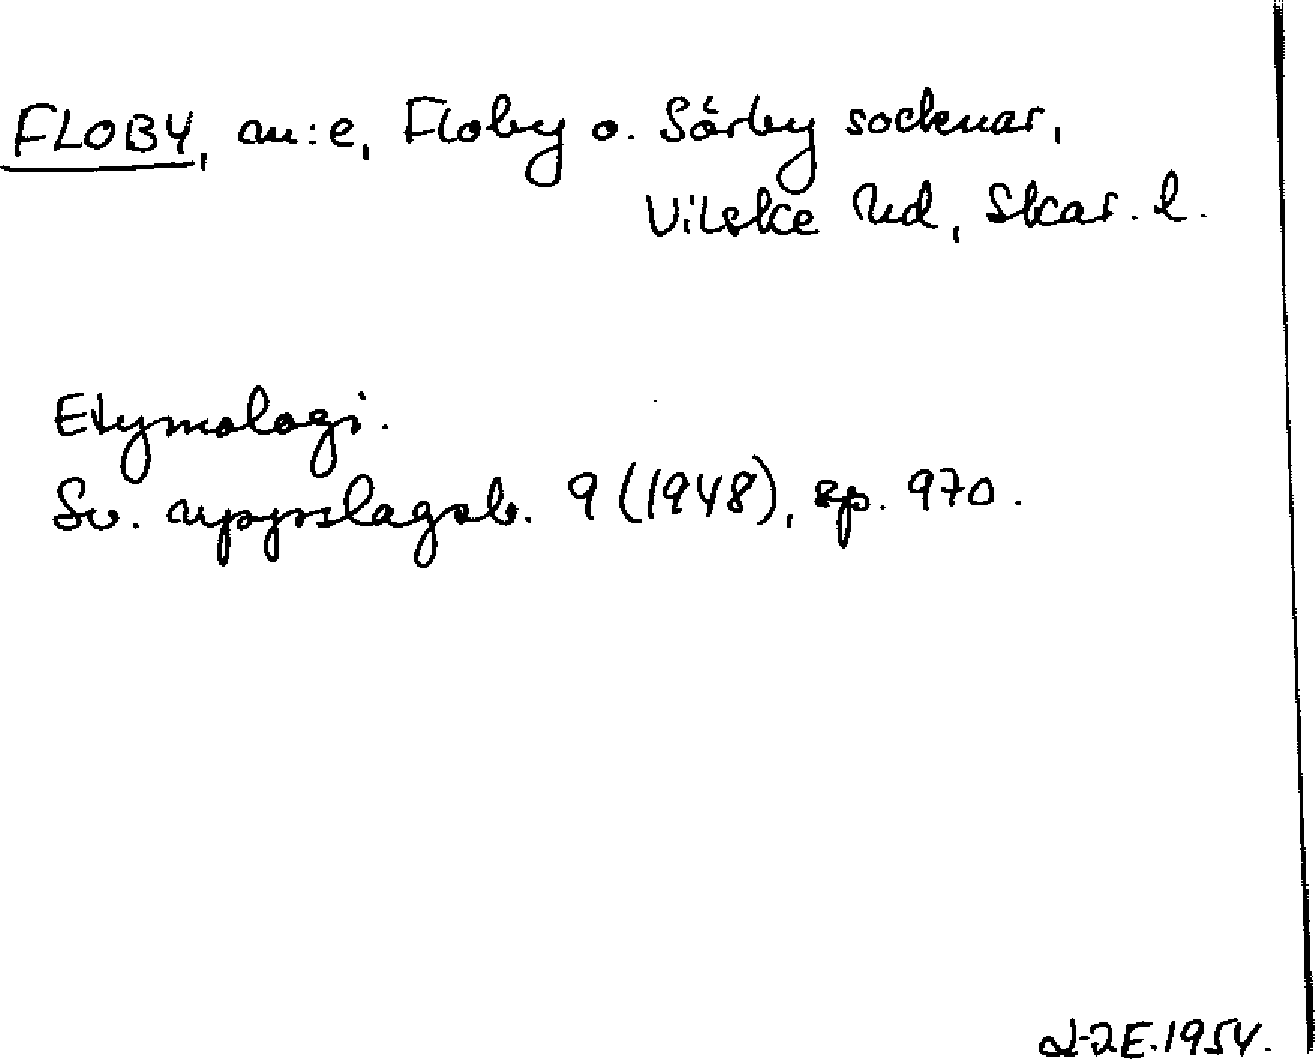 FLOBY, an:e, Floby o. Sörby socknar,
Vilske hd, Skar. l.
Etymologi.
Sv. uppslagsb. 9 (1948), sp. 970.
E. 1954.